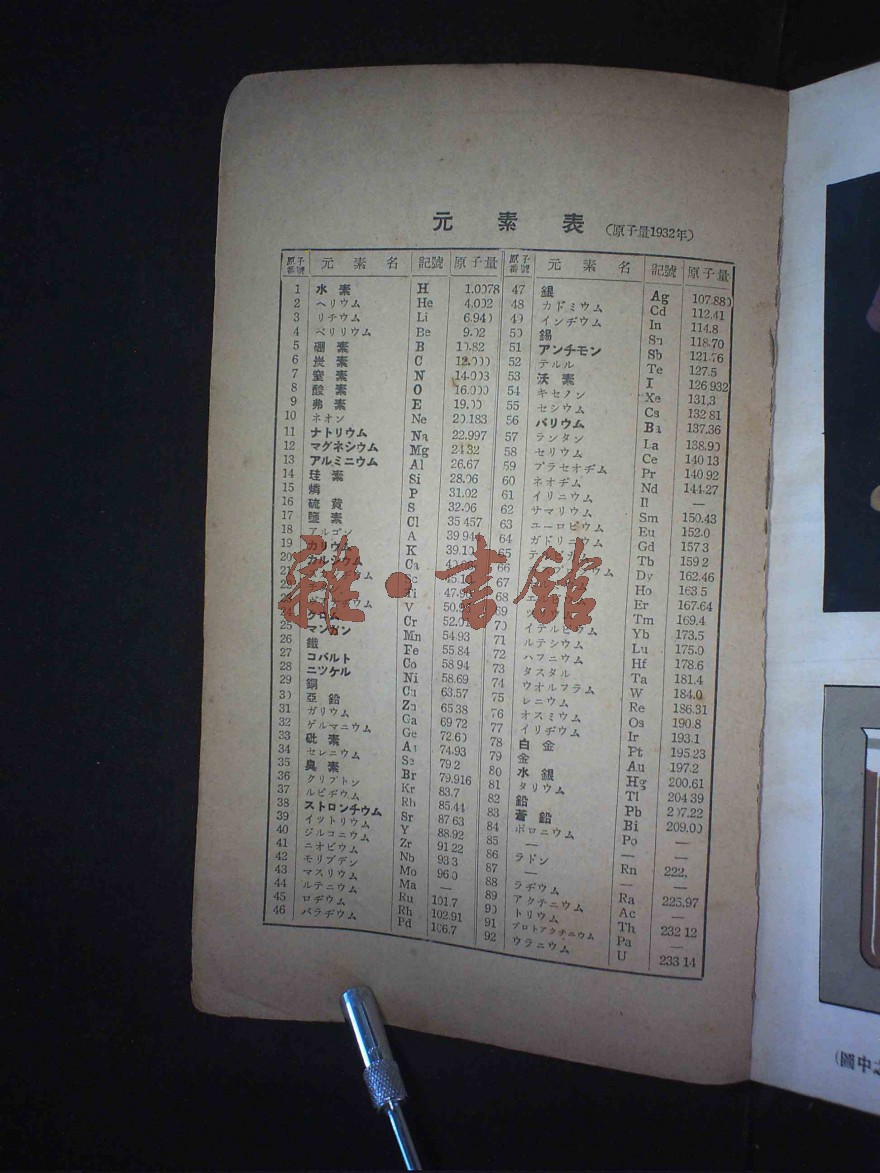 元素表 (原子量1932年)
原子番號 元素名 記號 原子量
1 水素 H 1.0078
2 ヘリウム He 4.002
3 リチウム Li 6.940
4 ベリリウム Be 9.02
5 硼素 B 10.82
6 炭素 C 12.000
7 窒素 N 14.008
8 酸素 O 16.000
9 弗素 F 19.00
10 ネオン Ne 20.183
11 ナトリウム Na 22.997
12 マグネシウム Mg 24.32
13 アルミニウム Al 26.67
14 珪素 Si 28.06
15 燐 P 31.02
16 硫黄 S 32.06
17 鹽素 Cl 35.457
18 アルゴン A 39.94
19 カリウム K 39.10
20 カルシウム Ca
21
22 Ti
23 V
24 クロム Cr 52.01
25 マンガン Mn 54.93
26 鐵 Fe 55.84
27 コバルト Co 58.94
28 ニツケル Ni 58.69
29 銅 Cu 63.57
30 亞鉛 Zn 65.38
31 ガリウム Ga 69.72
32 ゲルマニウム Ge 72.60
33 砒素 As 74.93
34 セレニウム Se 79.2
35 臭素 Br 79.916
36 クリプトン Kr 83.7
37 ルビヂウム Rb 85.44
38 ストロンチウム Sr 87.63
39 イツトリウム Y 88.92
40 ジルコニウム Zr 91.22
41 ニオビウム Nb 93.3
42 モリブデン Mo 96.0
43 マスリウム Ma —
44 ルテニウム Ru 101.7
45 ロヂウム Rh 102.91
46 パラヂウム Pd 106.7
原子番號 元素名 記號 原子量
47 銀 Ag 107.880
48 カドミウム Cd 112.41
49 インヂウム In 114.8
50 錫 Sn 118.70
51 アンチモン Sb 121.76
52 テルル Te 127.5
53 沃素 I 126.932
54 キセノン Xe 131.3
55 セシウム Cs 132.81
56 バリウム Ba 137.36
57 ランタン La 138.90
58 セリウム Ce 140.13
59 プラセオヂム Pr 140.92
60 ネオヂム Nd 144.27
61 イリニウム Il —
62 サマリウム Sm 150.43
63 ユーロビウム Eu 152.0
64 ガドリニウム Gd 157.3
65 Tb 159.2
66 Dy 162.46
67 Ho 163.5
68 Er 167.64
69 Tm 169.4
70 イテルビウム Yb 173.5
71 ルテシウム Lu 175.0
72 ハフニウム Hf 178.6
73 タスタル Ta 181.4
74 ウオルフラム W 184.0
75 レニウム Re 186.31
76 オスミウム Os 190.8
77 イリヂウム Ir 193.1
78 白金 Pt 195.23
79 金 Au 197.2
80 水銀 Hg 200.61
81 タリウム Tl 204.39
82 鉛 Pb 207.22
83 蒼鉛 Bi 209.00
84 ポロニウム Po —
85 — — —
86 ラドン Rn 222.
87 — — —
88 ラヂウム Ra 225.97
89 アクチニウム Ac —
90 トリウム Th 232.12
91 プロトアクチニウム Pa —
92 ウラニウム U 233.14
雜·書館
(圖中之